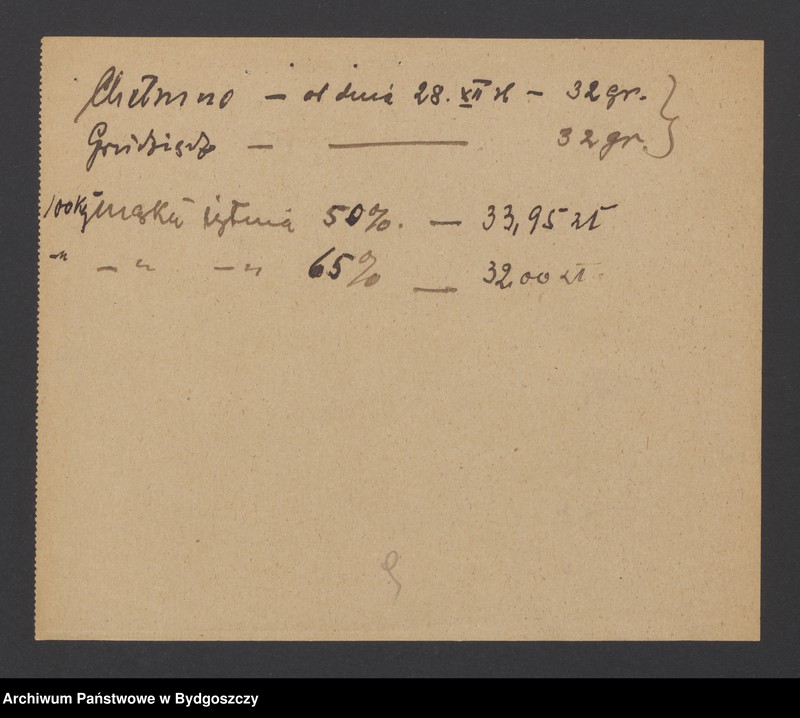 Chełmno – od dnia 28. XII – 32 gr.
Grudziądz – ——— 32 gr.
100 kg mąka żytnia 50%. – 33,95 zł
–"– –"– –"– 65% – 32,00 zł.
9
Archiwum Państwowe w Bydgoszczy